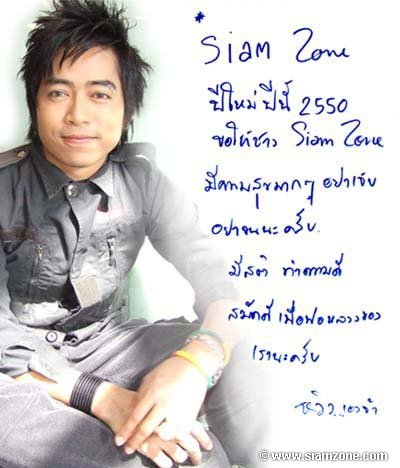 * Siam Zone
ปีใหม่ ปีนี้ 2550
ขอให้ชาว Siam Zone
มีความสุขมากๆ อย่าเจ็บ
อย่าจนนะครับ.
มีสติ ทำความดี
สามัคคี เพื่อพ่อหลวงของ
เรานะครับ
© www.siamzone.com